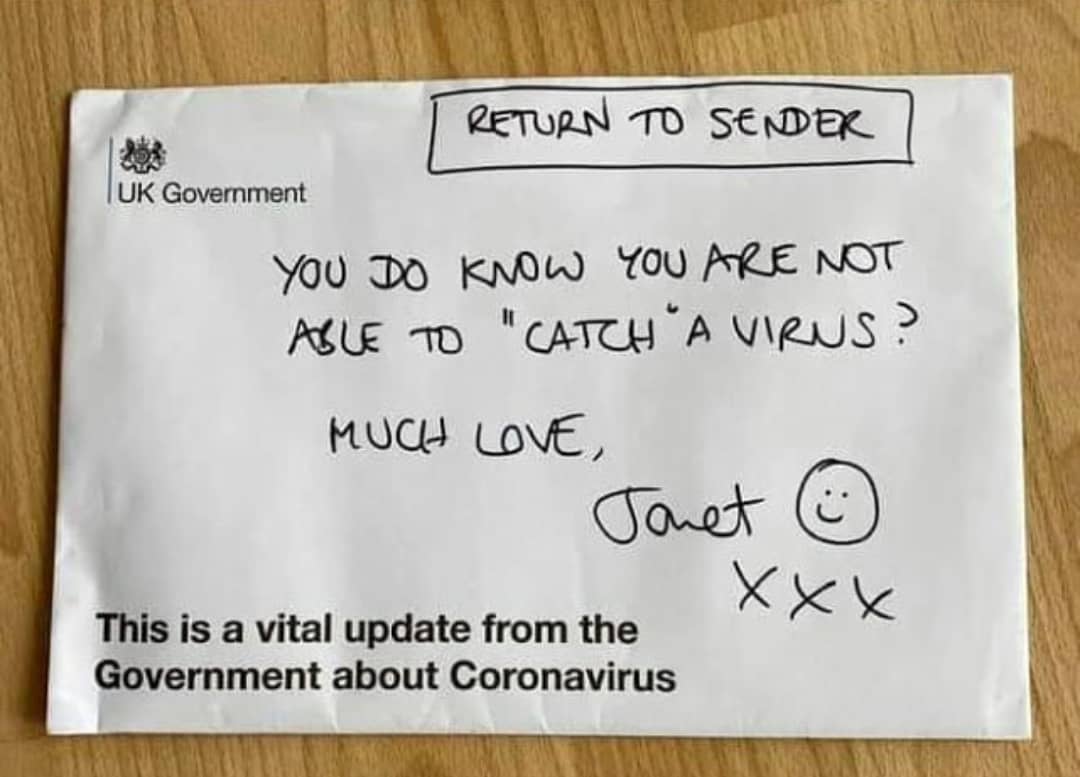 RETURN TO SENDER
UK Government
YOU DO KNOW YOU ARE NOT
ABLE TO "CATCH" A VIRUS?
MUCH LOVE,
Janet
XXX
This is a vital update from the
Government about Coronavirus